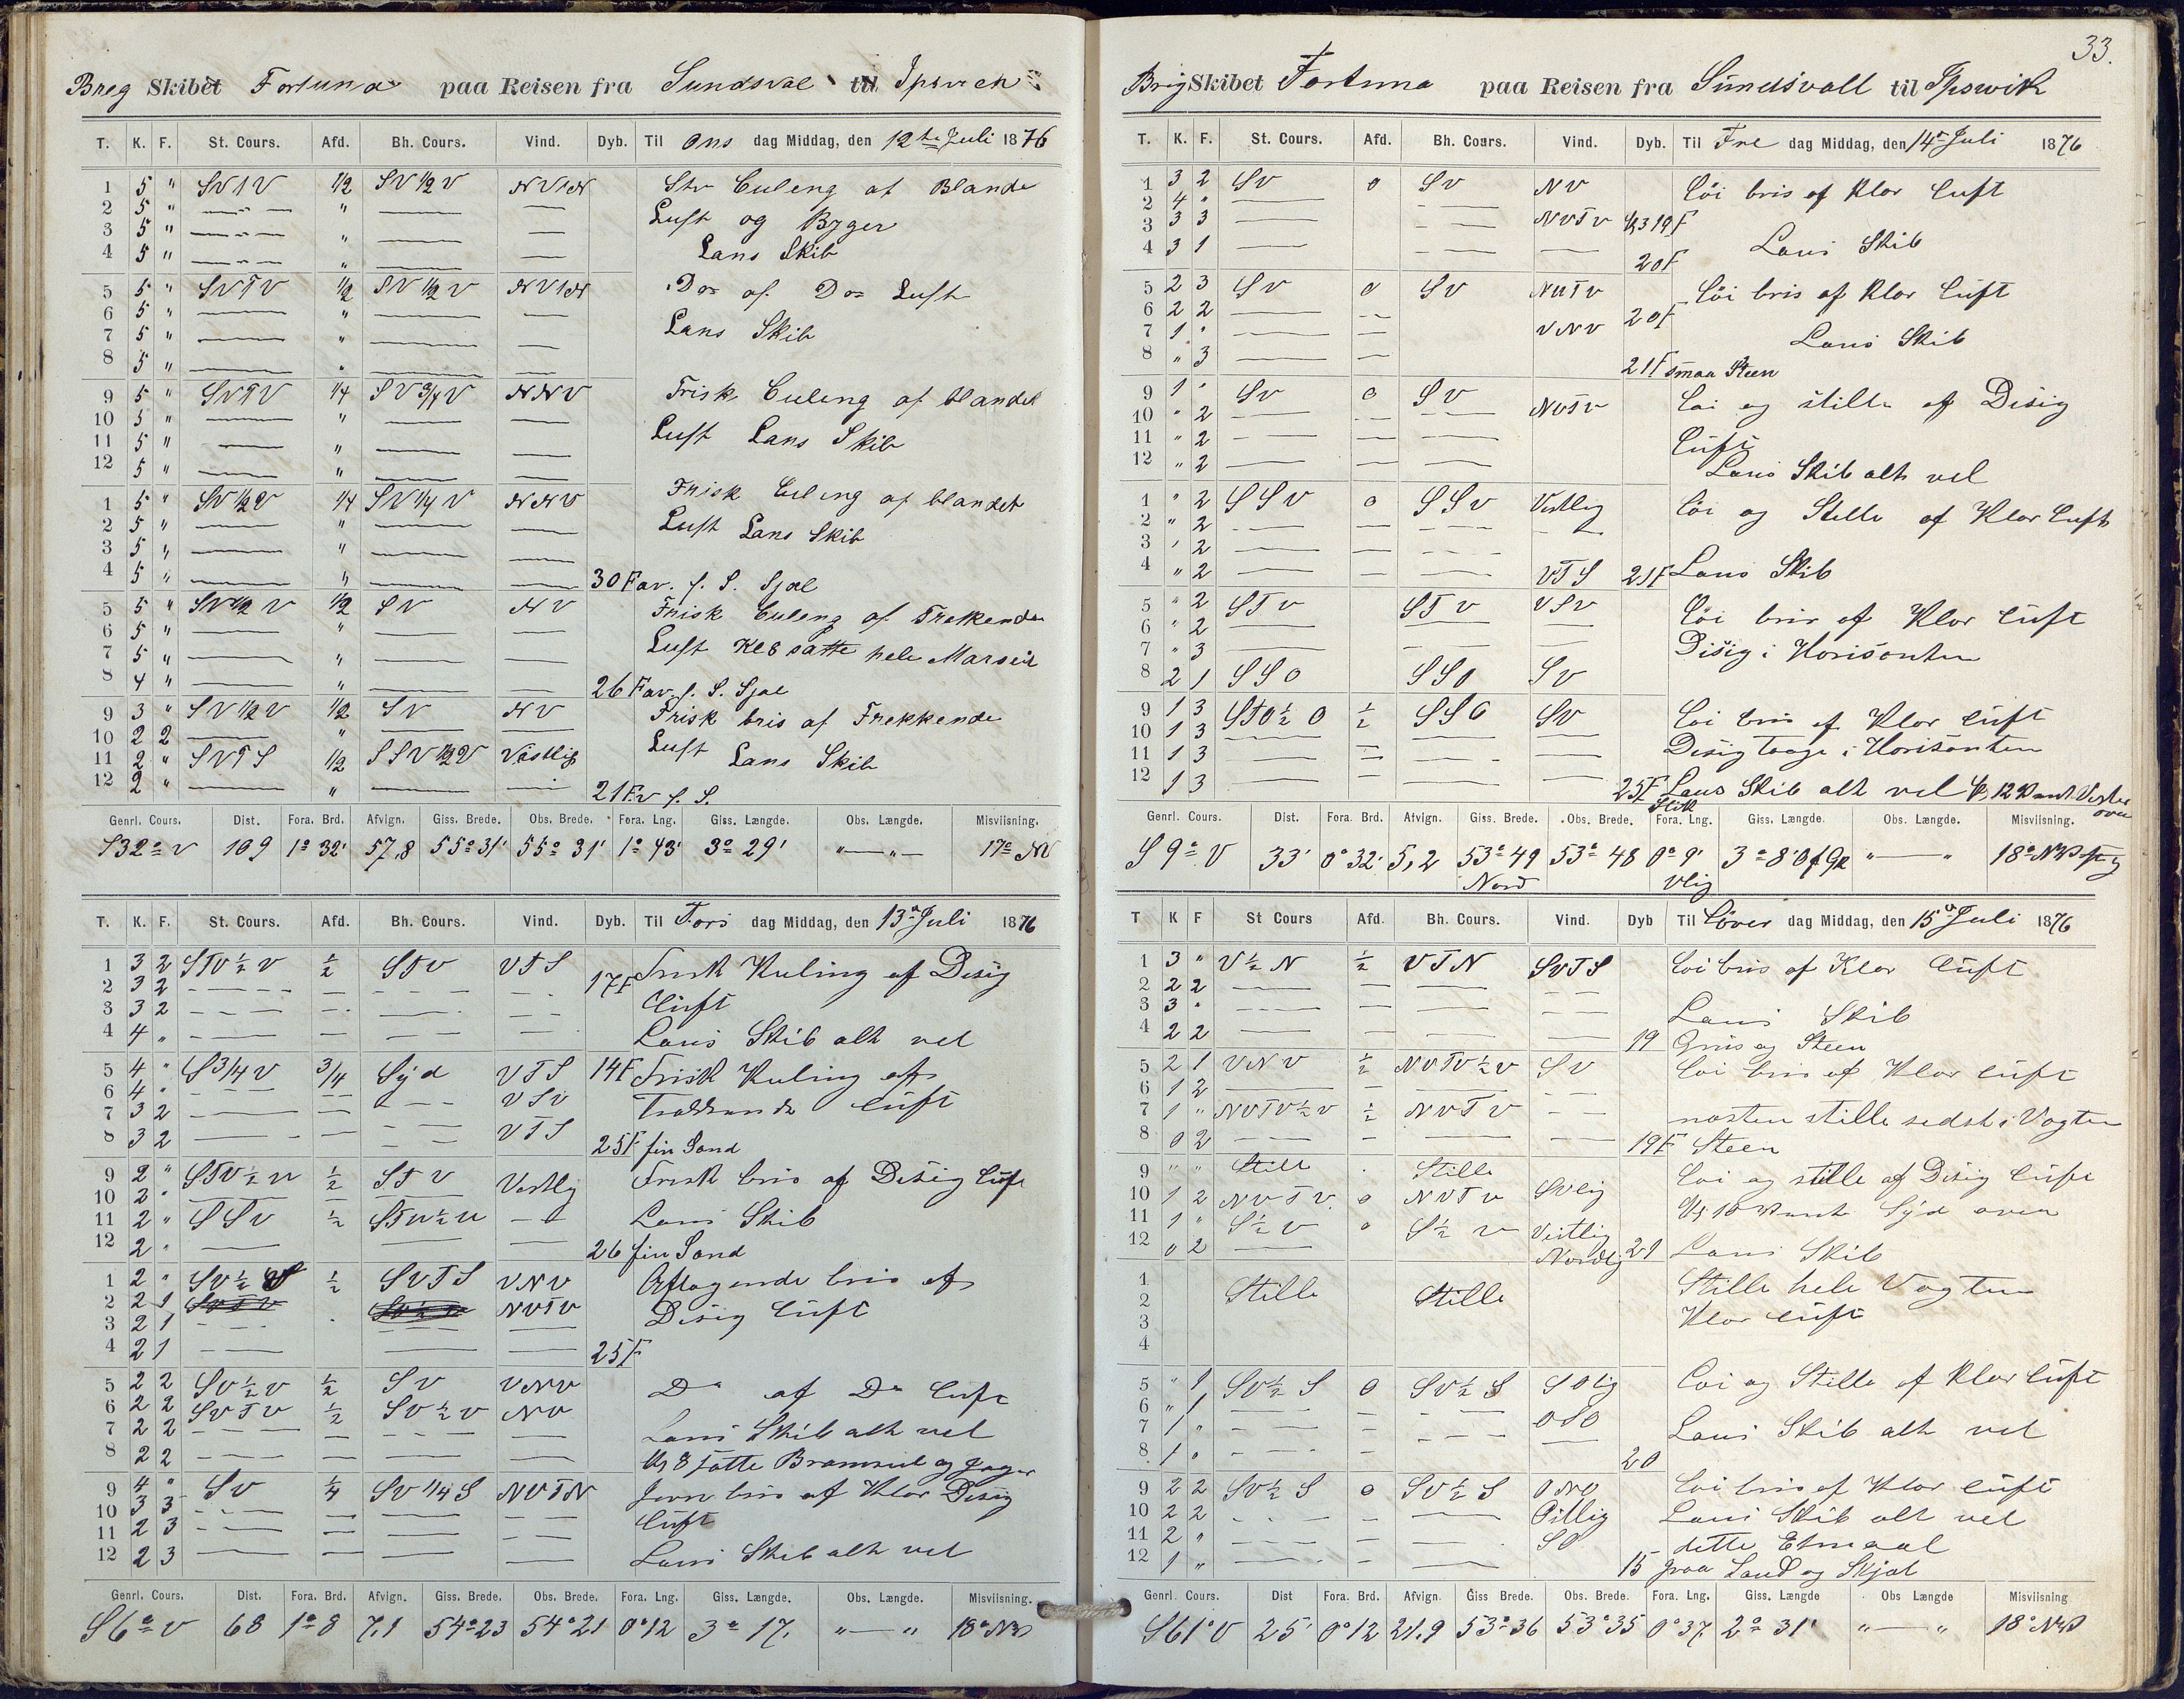 Breg Skibet Fortuna paa Reisen fra Sundsval til Ipsvich
T. K. F. St. Cours. Afd. Bh. Cours. Vind. Dyb. Til Ons dag Middag, den 12te Juli 1876
1 5 " SV1V 1/2 SV 1/2 V NV1N Stv Culeng af Blande
2 5 " — " — — Luft og Byger
3 5 " — " — — Lans Skib
4 5 " — " — —
5 5 " SVTV 1/2 SV 1/2 V NV1N Do af Do Luft
6 5 " — " — —
7 5 " — " — — Lans Skib
8 5 " — " — —
9 5 " SVTV 1/4 SV 3/4 V NNV Frisk Culeng af blandet
10 5 " — " — — Luft Lans Skib
11 5 " — " — —
12 5 " — " — —
1 5 " SV 1/2 V 1/4 SV 1/4 V NNV Frisk Culeng af blandet
2 5 " — " — — Luft Lans Skib
3 5 " — " — —
4 5 " — " — — 30 Fav. f. S. Sjæl
5 5 " SV 1/2 V 1/2 SV NV Frisk Culeng af Trekkende
6 5 " — " — — Luft Kl 8 satte hele Marseil
7 5 " — " — —
8 4 " — " — — 26 Fav. f. S. Sjæl
9 3 " SV 1/2 V 1/2 SV NV Frisk bris af Trekkende
10 2 2 — " — — Luft Lans Skib
11 2 " SVTS 1/2 SSV 1/2 V Vestlig
12 2 " — " — — 21 Fv f. S.
Genrl. Cours. Dist. Fora. Brd. Afvign. Giss. Brede. Obs. Brede. Fora. Lng. Giss. Længde. Obs. Længde. Misviisning.
S 32° V 109 1° 32' 57,8 55° 31' 55° 31' 1° 43' 3° 29' " — " — 17° NV
T. K. F. St. Cours. Afd. Bh. Cours. Vind. Dyb. Til Tors dag Middag, den 13de Juli 1876
1 3 2 STV 1/2 V 1/2 STV VTS Frisk Kuling af Disig
2 3 2 — — — — 17F Luft
3 3 2 — — — —
4 4 " — — — — Lans Skib alt vel
5 4 " S 3/4 V 3/4 Syd VTS 14F Frisk Kuling af
6 4 " — — — VSV Trækkende Luft
7 3 2 — — — VTS
8 3 2 — — — 25F fin Sand
9 2 " STV 1/2 V 1/2 STV Vestlig Frisk bris af Disig Luft
10 2 "
11 2 " SSV 1/2 STV 1/2 V — Lans Skib
12 2 " — — — 26 fin Sand
1 2 " SV 1/2 1/2 SVTS VNV Aftagende bris af
2 2 1 NVTV Disig Luft
3 2 1 — — —
4 2 1 — — — 25F
5 2 2 SV 1/2 V 1/2 SV VNV Do af Do Luft
6 2 2 SVTV 1/2 SV 1/2 V NV
7 2 2 — — — — Lans Skib alt vel
8 2 2 — — — — Kl 8 satte Bramseil og Jager
9 4 " SV 1/4 SV 1/4 S NVTN Jevn bris af Klar Disig
10 3 3 — — — — Luft
11 2 3 — — — —
12 2 3 — — — — Lans Skib alt vel
Genrl. Cours. Dist. Fora. Brd. Afvign. Giss. Brede. Obs. Brede. Fora. Lng. Giss. Længde. Obs. Længde. Misviisning.
S 6° V 68 1° 8 7,1 54° 23 54° 21 0° 12 3° 17. " — " 18° NV
33.
Brig Skibet Fortuna paa Reisen fra Sundsvall til Ipswik
T. K. F. St. Cours. Afd. Bh. Cours. Vind. Dyb. Til Fre dag Middag, den 14de Juli 1876
1 3 2 SV 0 SV NV Löi bris af Klar Luft
2 4 " — — —
3 3 3 — — — NVTV Kl 3 19F
4 3 1 — — — 20F Lans Skib
5 2 3 SV 0 SV NVTV Löi bris af Klar Luft
6 2 2 — — 20F
7 1 " — — VNV Lans Skib
8 " 3 — — 21F smaa Steen
9 1 " SV 0 SV NVTV Löi og stille af Disig
10 " 2 — — —
11 " 2 — — — Luft
12 " 2 — — — Lans Skib alt vel
1 " 2 SSV 0 SSV Vestlig Löi og Stille af Klar Luft
2 " 2 — — — —
3 " 2 — — —
4 " 2 — — — VTS 21F Lans Skib
5 " 2 STV STV VSV Löi bris af Klar Luft
6 " 2 — — —
7 " 3 — — — Disig i Horisonten
8 2 1 SSO SSO SV
9 1 3 STO 1/2 O 1/2 SSO SV Löi bris af Klar Luft
10 1 3 — — — Disig Taage i Horisonten
11 1 3 — — — —
12 1 3 — — — — 25F Lans Skib alt vel Kl, 12 Vant Vester over
Stik
Genrl. Cours. Dist. Fora. Brd. Afvign. Giss. Brede. Obs. Brede. Fora. Lng. Giss. Længde. Obs. Længde. Misviisning.
S 9° V 33' 0° 32' 5,2 53° 49 Nord 53° 48 0° 9' Vlig 3° 8' Of Gr " — " 18° NV
T K F St Cours Afd. Bh. Cours. Vind. Dyb Til Löver dag Middag, den 15de Juli 1876
1 3 " V 1/2 N 1/2 VTN SVTS Löi bris af Klar Luft
2 2 2 — — — —
3 3 " — — — — Lans Skib
4 2 2 — — — — 19 Grus og Steen
5 2 1 VNV 1/2 NVTV 1/2 V SV Löi bris af Klar Luft
6 1 2 — — —
7 1 " NVTV 1/2 V 1/2 NVTV — næsten stille sedst i Vagten
8 0 2 — — — — 19F Steen
9 " " Stille Stille Löi og stille af Disig Luft
10 1 2 NVTV. 0 NVTV SVlig Kl 10 Vant Syd over
11 1 " S 1/2 V 0 S 1/2 V Vestlig
12 0 2 — Nordlig 21 Lans Skib
1 Stille Stille Stille hele Vagten
2
3 Klar Luft
4
5 " 1 SV 1/2 S 0 SV 1/2 S SOlig Löi og Stille af Klar Luft
6 " 1 — — —
7 1 " — — — OSO Lans Skib alt vel
8 1 " — — — — 20
9 2 2 SV 1/2 S 0 SV 1/2 S ONO Löi bris af Klar Luft
10 2 2 — — — Östlig Lans Skib alt vel
11 2 " — — — SO dette Etmaal
12 1 " — — — 15 graa Sand og Skjæl
Genrl. Cours. Dist Fora. Brd. Afvign. Giss Brede. Obs. Brede. Fora. Lng. Giss. Længde Obs Længde Misviisning
S 61° V 25' 0° 12 21.9 53° 36 53° 35 0° 37. 2° 31' " — " 18° NV